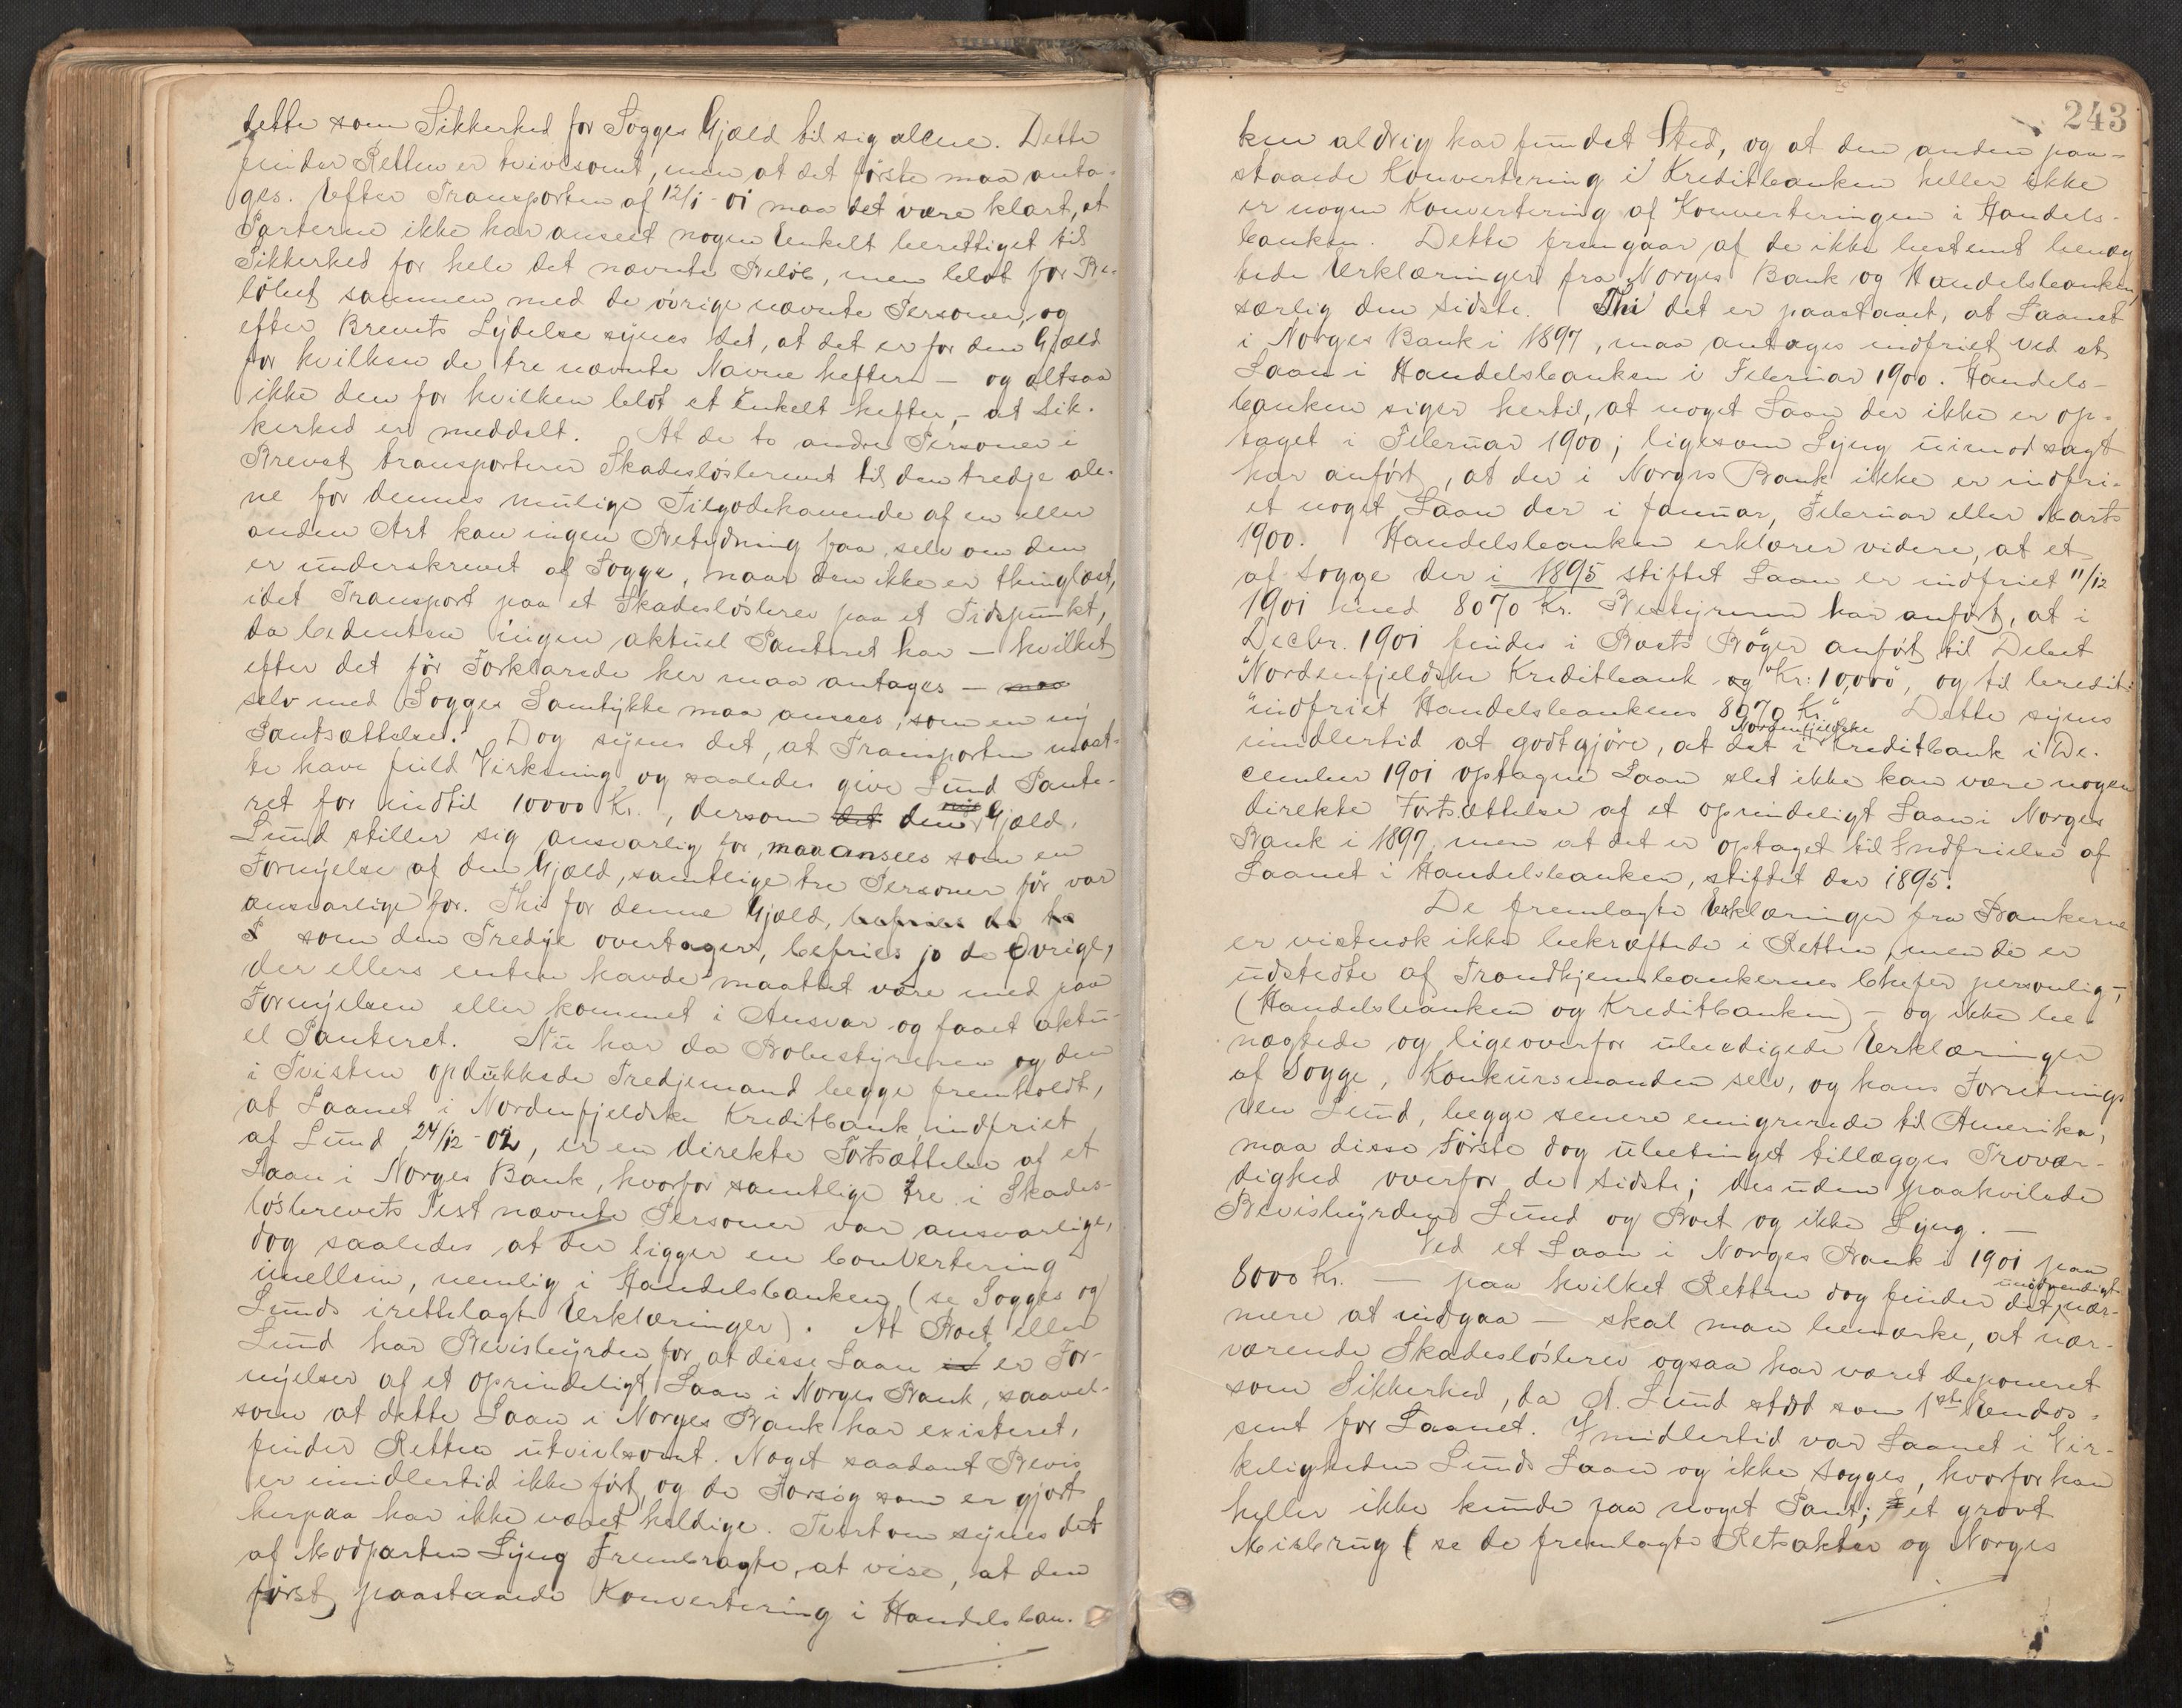 dette som Sikkerhed for Sogges Gjæld til sig alene. Dette
finder Retten er tvivlsomt, men at det første maa anta-
ges. Efter Transporten af 12/1-01 maa det være klart, at
Parterne ikke har anseet nogen Enkelt berettiget til
Sikkerhed for hele det nævnte Beløb, men blot for Be-
løbet sammen med de øvrige nævnte Personer, og
efter Brevets Lydelse synes det, at det er for den Gjæld
for hvilken de tre nævnte Navne hefter – og altsaa
ikke den for hvilken blot et Enkelt hefter, – at Sik-
kerhed er meddelt. At de to andre Personer i
Brevet transporterer Skadesløsbrevet til den tredje ale-
ne for dennes mulige Tilgodehavende af en eller
anden Art kan ingen Betydning faa, selv om den
er underskrevet af Sogge, naar den ikke er thinglæst,
idet Transport paa et Skadesløsbrev paa et Tidspunkt,
da Cedenten ingen aktuel Panteret har – hvilket
efter det før Forklarede her maa antages – maa
selv med Sogges Samtykke maa ansees, som en ny
Pantsættelse. Dog synes det, at Transporten maat-
te have fuld Virkning og saaledes give Lund Pante-
ret for indtil 10000 Kr., dersom det den ny Gjæld,
Lund stiller sig ansvarlig for, maa ansees som en
Fornyelse af den Gjæld, samtlige tre Personer før var
ansvarlige for. Thi for denne Gjæld, befries de to
som den Tredje overtager, befries jo de Øvrige,
der ellers enten havde maattet være med paa
Fornyelsen eller kommet i Ansvar og faaet aktu-
el Panteret. Nu har da Bobestyreren og den
i Tvisten opdukkede Tredjemand begge fremholdt,
at Laanet i Nordenfjeldske Kreditbank, indfriet
af Lund 24/12-02, er en direkte Fortsættelse af et
Laan i Norges Bank, hvorfor samtlige tre i Skades-
løsbrevets Text nævnte Personer var ansvarlige,
dog saaledes at der ligger en Convertering
imellem, nemlig i Handelsbanken (se Sogges og
Lunds irettelagte Erklæringer). At Boet eller
Lund har Bevisbyrden for, at disse Laan er For-
nyelser af et oprindeligt Laan i Norges Bank, saavel-
som at dette Laan i Norges Bank har existeret,
finder Retten utvivlsomt. Noget saadant Bevis
er imidlertid ikke ført, og de Forsøg som er gjort
herpaa har ikke været heldige. Tvertom synes det
af Modparten Lyng Frembragte, at vise, at den
først paastaaede Konvertering i Handelsban-
243
ken aldrig har fundet Sted, og at den anden paa-
staaede Konvertering i Kreditbanken heller ikke
er nogen Konvertering af Konverteringen i Handels-
banken. Dette fremgaar af de ikke bestemt benæg-
tede Erklæringer fra Norges Bank og Handelsbanken,
særlig den sidste. Thi det er paastaaet, at Laanet
i Norges Bank i 1897, maa antages indfriet ved et
Laan i Handelsbanken i Februar 1900. Handels-
banken siger hertil, at noget Laan der ikke er op-
taget i Februar 1900; ligesom Lyng uimodsagt
har anført, at der i Norges Bank ikke er indfri-
et noget Laan der i Januar, Februar eller Marts
1900. Handelsbanken erklærer videre, at et
af Sogge der i 1895 stiftet Laan er indfriet 11/12
1901 med 8070 Kr. Bestyreren har anført, at i
Decbr. 1901 findes i Boets Bøger anført til Debet
"Nordenfjeldske Kreditbank og Kr: 10,000", og til Credit:
"indfriet Handelsbankens 8070 Kr." Dette synes
imidlertid at godtgjøre, at det i Nordenfjeldske Creditbank i De-
cember 1901 optagne Laan slet ikke kan være nogen
direkte Fortsættelse af et oprindeligt Laan i Norges
Bank i 1897, men at det er optaget til Indfrielse af
Laanet i Handelsbanken, stiftet der 1895.
De fremlagte Erklæringer fra Bankerne
er vistnok ikke bekræftede i Retten, men de er
udstedte af Trondhjemsbankernes Chefer personlig –
(Handelsbanken og Kreditbanken) – og ikke be-
nægtede og ligeoverfor ubeedigede Erklæringer
af Sogge, Konkursmanden selv, og hans Forretnings
ven Lund, begge senere emigrerede til Amerika,
maa disse Første dog ubetinget tillægges Trovær-
dighed overfor de sidste; desuden paahvilede
Bevisbyrden Lund og Boet og ikke Lyng. –
Ved et Laan i Norges Bank i 1901 paa
8000 Kr. – paa hvilket Retten dog finder det unødvendigt nær-
mere at indgaa – skal man bemærke, at nær-
værende Skadesløsbrev ogsaa har været deponeret
som Sikkerhed, da A. Lund stod som 1ste Endos-
sent for Laanet. Imidlertid var Laanet i Vir-
keligheden Lunds Laan og ikke Sogges, hvorfor han
heller ikke kunde faa noget Pant; et grovt
Misbrug (se de fremlagte Retsakter og Norges